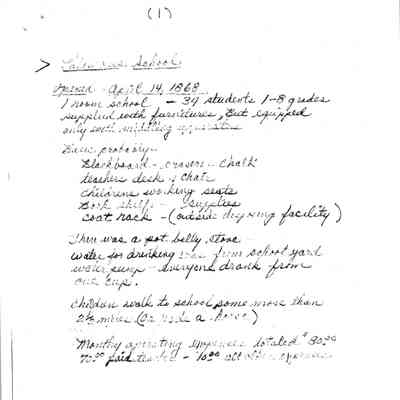 (1)
> School
Opened - April 14, 1868
1 room school - 34 students 1-8 grades
supplied with furnitures, But equipped
only with middling apparatus
Basic probably -
Blackboard - erasers - chalk
teachers desk & chair
childrens working seats
Book shelf - supplies
coat rack - (outside facility)
There was a pot belly stove
water for drinking was from school yard
water pump - everyone drank from
one cup.
Children walk to school some more than
2½ miles (or rode a horse)
Monthly operating expenses totaled $80.00
70.00 paid teacher - 10.00 all other expenses